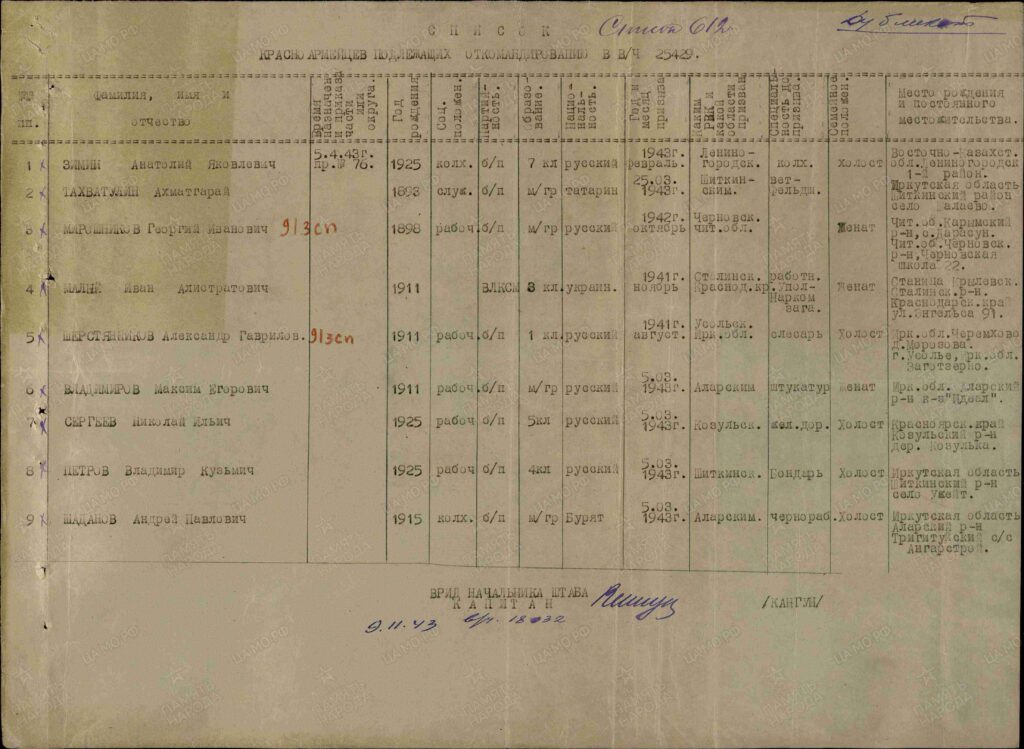 С П И С О К
Список 612
Дубликат
КРАСНОАРМЕЙЦЕВ ПОДЛЕЖАЩИХ ОТКОМАНДИРОВАНИЮ В В/Ч 25429.
№№ пп.
Фамилия, имя и отчество
Время назначен. и приказ части или округа.
Год рождения
Соц. положен.
Партийность.
Образование.
Национальность.
Год и месяц призыва
Каким РВК и какой области призван
Специальность до призыва.
Семейное положен.
Место рождения и постоянного местожительства.
1 ЗИМИН Анатолий Яковлевич 5.4.43г. пр.№ 76. 1925 колх. б/п 7 кл русский 1943г. февраль. Ленино-городск. колх. Холост Восточно-Казахст. обл.Лениногородск 1-й район.
2 ТАХВАТУЛИН Ахматгарай 1893 служ. б/п м/гр татарин 25.03. 1943г. Шиткинским. вет-фельдш. Иркутская область Шиткинский район село Шалаево.
3 МИРОШНИКОВ Георгий Иванович 9/3сп 1898 рабоч. б/п м/гр русский 1942г. октябрь Черновск. чит.обл. Женат Чит.об.Карымский р-н,с.Дарасун. Чит.об.Черновск. р-н,Черновская школа 22.
4 МАЛИЙ Иван Алистратович 1911 ВЛКСМ 3 кл. украин. 1941г. ноябрь Сталинск. Краснод.кр. работн. Упол-Нарком вага. Женат Станица Крылевск. Сталинск.р-н. Краснодарск.край ул.Энгельса 91.
5 ШЕРСТЯННИКОВ Александр Гаврилов. 9/3сп 1911 рабоч. б/п 1 кл. русский 1941г. август. Усольск. Ирк.обл. слесарь Холост Ирк.обл.Черемхово д.Морозова. г.Усолье,Ирк.обл. Заготзерно.
6 ВЛАДИМИРОВ Максим Егорович 1911 рабоч б/п м/гр русский 5.03. 1943г. Аларским штукатур Женат Ирк.обл. Аларский р-н к-з"Идеал".
7 СЕРГЕЕВ Николай Ильич 1925 рабоч б/п 5кл русский 5.03. 1943г. Козульск. жел.дор. Холост Красноярск.край Козульский р-н дер. Козулька.
8 ПЕТРОВ Владимир Кузьмич 1925 рабоч б/п 4кл русский 5.03. 1943г. Шиткинск. Бондарь Холост Иркутская область Шиткинский р-н село Ужейт.
9 ШАДАНОВ Андрей Павлович 1915 колх. б/п м/гр Бурят 5.03. 1943г. Аларским. чернораб. Холост Иркутская область Аларский р-н Тригитуйский с/с Ангарстрой.
ВРИД НАЧАЛЬНИКА ШТАБА
К А П И Т А Н /КАНГУН/
9.11.43